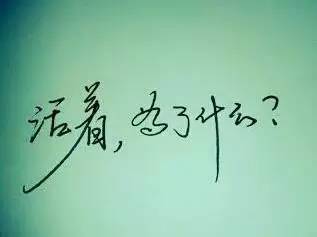 活着，为了什么？